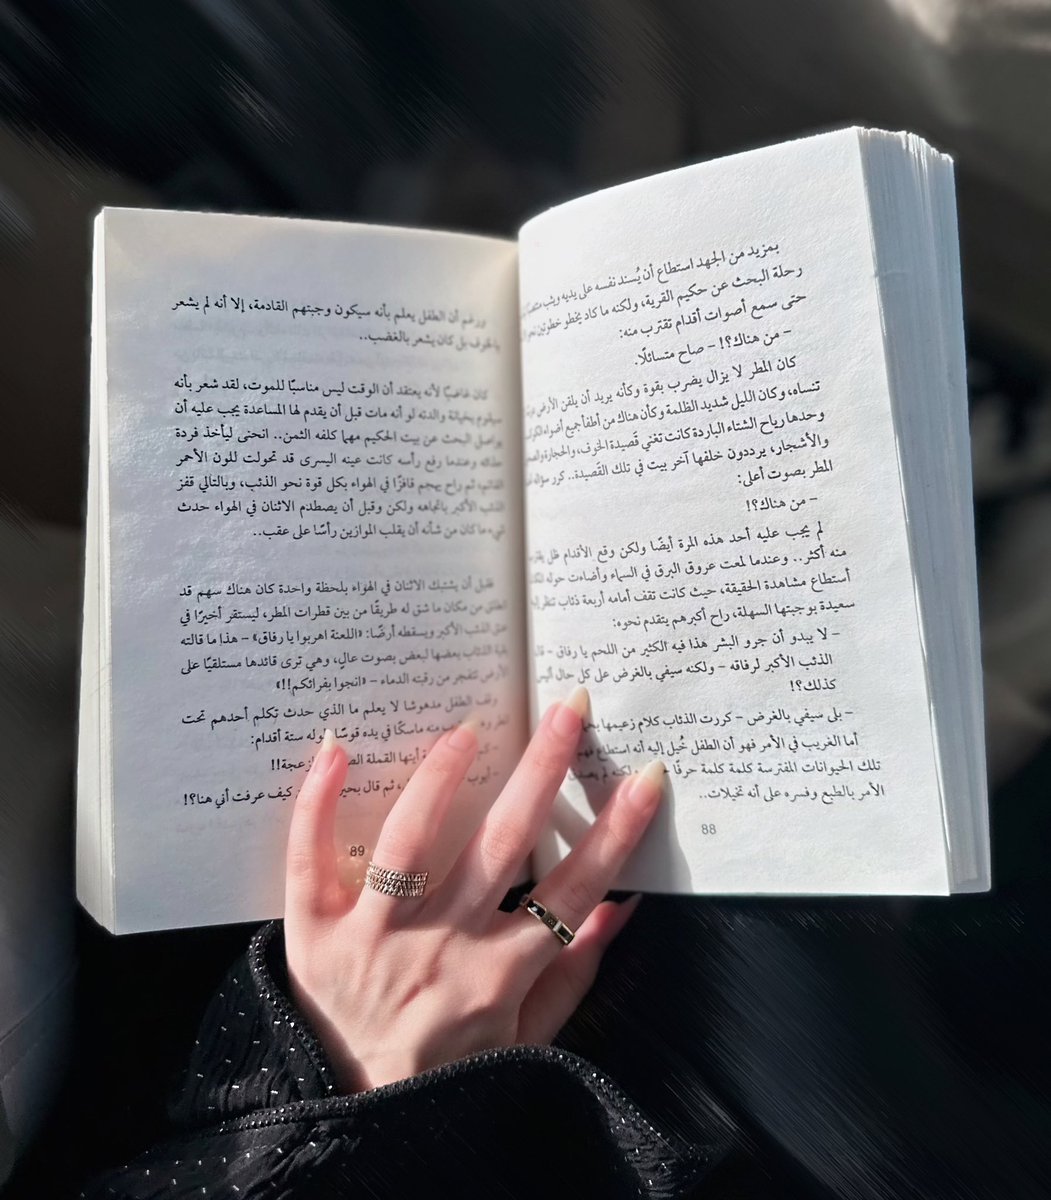 بمزيد من الجهد استطاع أن يُسند نفسه على يديه ويثب
رحلة البحث عن حكيم القرية، ولكنه ما كاد يخطو خطوتين
حتى سمع أصوات أقدام تقترب منه:
- من هناك؟! - صاح متسائلًا.
كان المطر لا يزال يضرب بقوة وكأنه يريد أن يلقن الأرض
تنساه، وكان الليل شديد الظلمة وكأن هناك من أطفأ جميع أضواء
وحدها رياح الشتاء الباردة كانت تغني قَصيدة الخوف، والحجارة
والأشجار، يرددون خلفها آخر بيت في تلك القَصيدة.. كرر سؤاله
المطر بصوت أعلى:
- من هناك؟!
لم يجب عليه أحد هذه المرة أيضًا ولكن وقع الأقدام ظل
منه أكثر.. وعندما لمعت عروق البرق في السماء وأضاءت حوله
أستطاع مشاهدة الحقيقة، حيث كانت تقف أمامه أربعة ذئاب تنظر إليه
سعيدة بوجبتها السهلة، راح أكبرهم يتقدم نحوه:
- لا يبدو أن جرو البشر هذا فيه الكثير من اللحم يا رفاق -
الذئب الأكبر لرفاقه - ولكنه سيفي بالغرض على كل حال أليس
كذلك؟!
- بلى سيفي بالغرض - كررت الذئاب كلام زعيمها
أما الغريب في الأمر فهو أن الطفل خُيل إليه أنه استطاع فهم
تلك الحيوانات المفترسة كلمة كلمة حرفًا ولكنه لم
الأمر بالطبع وفسره على أنه تخيلات..
88
ورغم أن الطفل يعلم بأنه سيكون وجبتهم القادمة، إلا أنه لم يشعر
بالخوف بل كان يشعر بالغضب..
كان غاضبًا لأنه يعتقد أن الوقت ليس مناسبًا للموت، لقد شعر بأنه
سيقوم بخيانة والدته لو أنه مات قبل أن يقدم لها المساعدة يجب عليه أن
يواصل البحث عن بيت الحكيم مهما كلفه الثمن.. انحنى ليأخذ فردة
حذائه وعندما رفع رأسه كانت عينه اليسرى قد تحولت للون الأحمر
القاتم، ثم راح يهجم قافزًا في الهواء بكل قوة نحو الذئب، وبالتالي قفز
الذئب الأكبر باتجاهه ولكن وقبل أن يصطدم الاثنان في الهواء حدث
شيء ما كان من شأنه أن يقلب الموازين رأسًا على عقب..
فقبل أن يشتبك الاثنان في الهواء بلحظة واحدة كان هناك سهم قد
انطلق من مكان ما شق له طريقًا من بين قطرات المطر، ليستقر أخيرًا في
عنق الذئب الأكبر ويسقطه أرضًا: «اللعنة اهربوا يا رفاق» - هذا ما قالته
بقية الذئاب بعضها لبعض بصوت عالٍ، وهي ترى قائدها مستلقيًا على
الأرض تتفجر من رقبته الدماء - «انجوا بفرائكم!!»
وقف الطفل مدهوشا لا يعلم ما الذي حدث تكلم أحدهم تحت
منه ماسكًا في يده قوسًا طوله ستة أقدام:
أيتها القملة
- أيوب ، ثم قال كيف عرفت أني هنا؟!
89